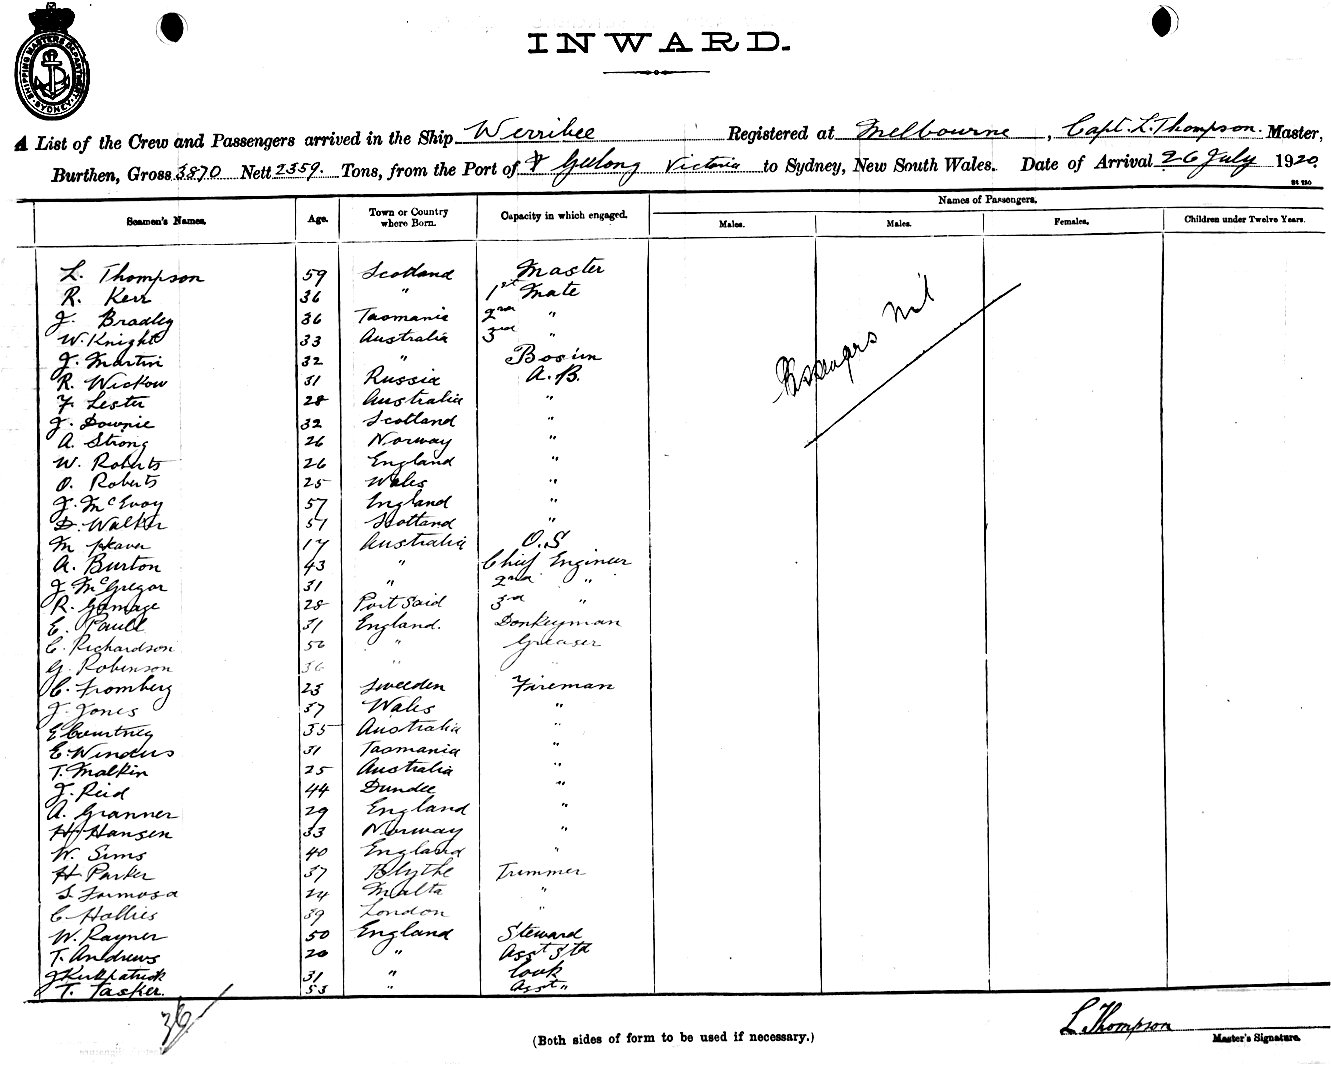 SHIPPING MASTERS DEPARTMENT SYDNEY
INWARD.
A List of the Crew and Passengers arrived in the Ship Werribee Registered at Melbourne, Capt. L. Thompson. Master,
Burthen, Gross 3870 Nett 2359. Tons, from the Port of Geelong Victoria to Sydney, New South Wales. Date of Arrival 26 July 1920.
Seamen's Names. Age. Town or Country where Born. Capacity in which engaged. Names of Passengers.
Males. Males. Females. Children under Twelve Years.
L. Thompson 59 Scotland Master
R. Kerr 36 " 1st Mate
J. Bradley 36 Tasmania 2nd "
W. Knight 33 Australia 3rd "
J. Martin 32 " Bosun
R. Wickow 31 Russia A.B.
F. Lester 28 Australia "
J. Downie 32 Scotland "
A. Strong 26 Norway "
W. Roberts 26 England "
O. Roberts 25 Wales "
J. McEvoy 57 England "
D. Walker 51 Scotland "
M 17 Australia O.S
A. Burton 43 " Chief Engineer
J. McGregor 31 " 2nd "
R. Gamage 28 Port Said 3rd "
E. Paull 31 England. Donkeyman
C. Richardson 56 " Greaser
G. Robinson 36 " "
C. Fromberg 23 Sweeden Fireman
J. Jones 37 Wales "
E Courtney 35 Australia "
E. Winders 31 Tasmania "
T. Malkin 25 Australia "
J. Reid 44 Dundee "
A. Granner 29 England "
H. Hansen 33 Norway "
W. Sims 40 England "
H Parker 37 Blythe Trimmer
S. Formosa 24 Malta "
C. Hollies 39 London "
W. Rayner 50 England Steward
T. Andrews 20 " Asst Std
J Kirkpatrick 31 " Cook
T. Tasker. 53 " Asst "
Passengers Nil
36
L Thompson
(Both sides of form to be used if necessary.)
Master's Signature.